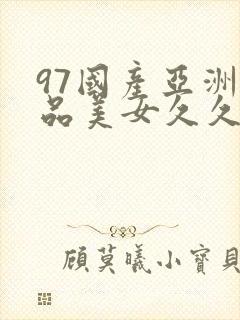 97國產亞洲
品美女久久
顧莫曦小寶貝